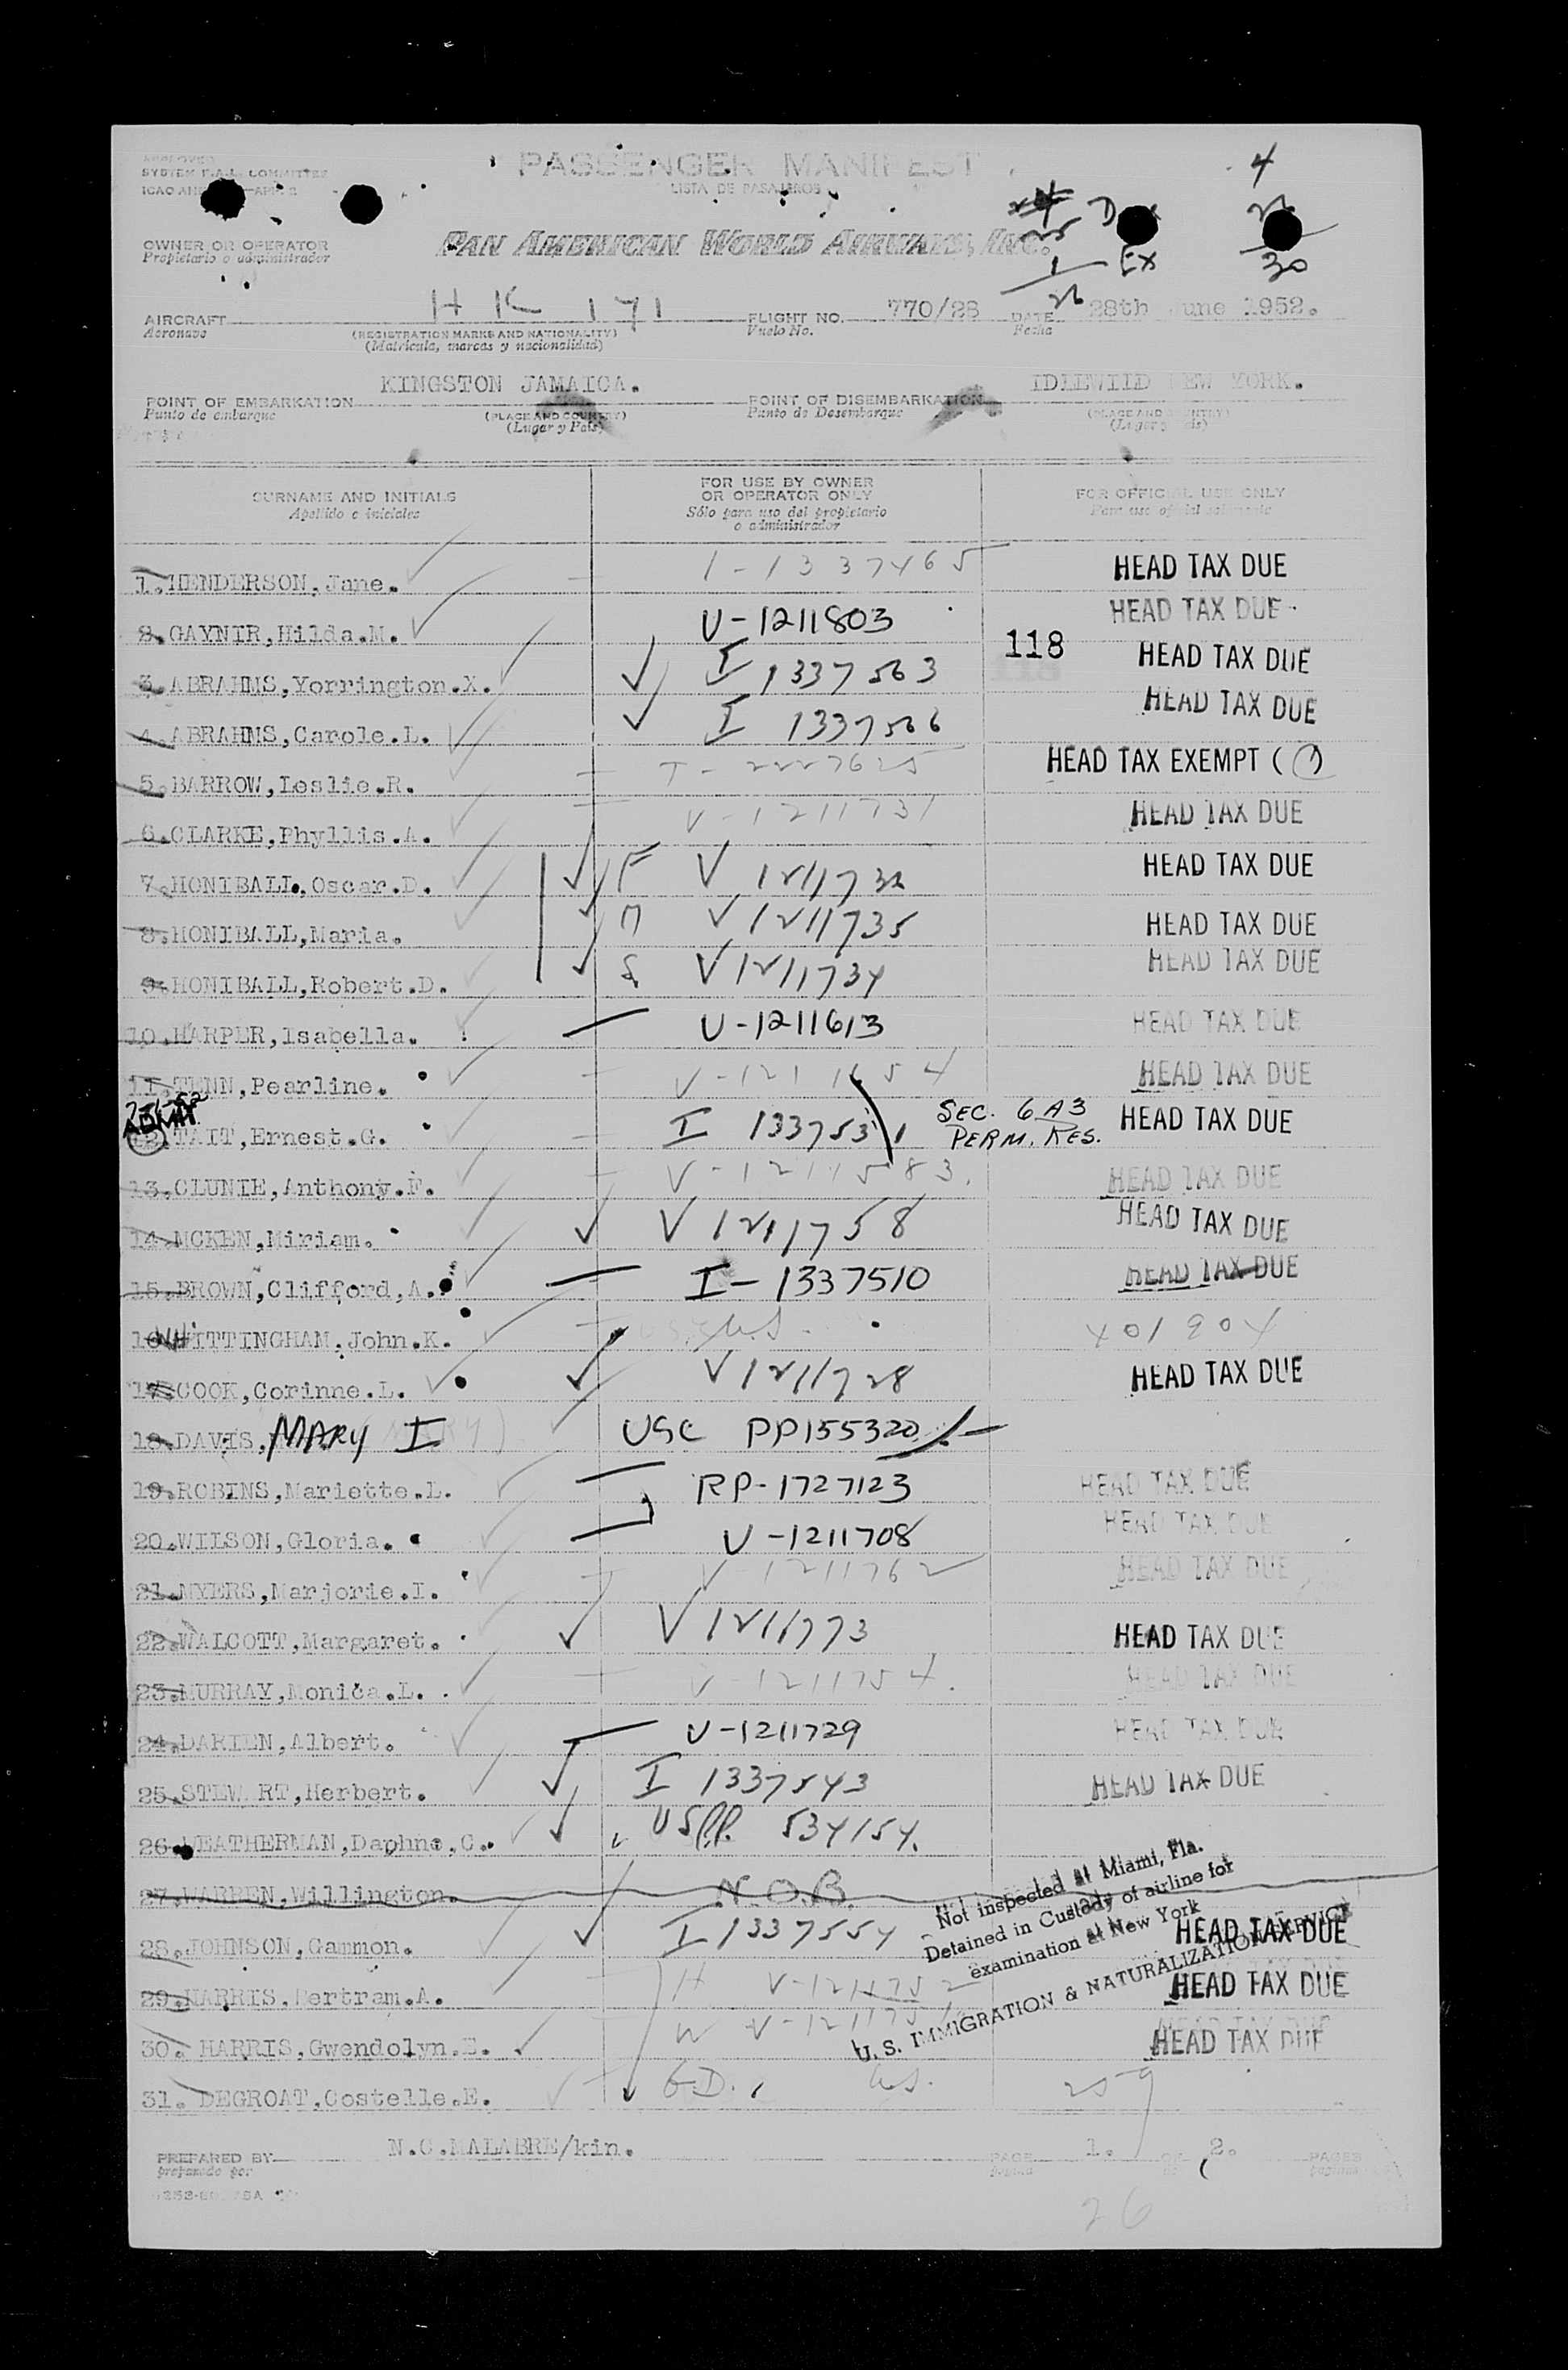 APPROVED
SYSTEM F.A.L. COMMITTEE
ICAO
PASSENGER MANIFEST
LISTA DE PASAJEROS
4
OWNER OR OPERATOR
Propietario o administrador
PAN AMERICAN WORLD AIRWAYS, INC.
1 EX
26
30
AIRCRAFT HK 171 FLIGHT NO. 770/28 DATE 28th June 1952.
Aeronave (REGISTRATION MARKS AND NATIONALITY) Vuelo No. Fecha
(Matricula, marcas y nacionalidad)
KINGSTON JAMAICA. IDLEWILD NEW YORK.
POINT OF EMBARKATION POINT OF DISEMBARKATION
Punto de embarque (PLACE AND COUNTRY) Punto de Desembarque (PLACE AND COUNTRY)
(Lugar y País) (Lugar y País)
SURNAME AND INITIALS FOR USE BY OWNER OR OPERATOR ONLY FOR OFFICIAL USE ONLY
Apellido e iniciales Sólo para uso del propietario o administrador Para uso oficial solamente
1.HENDERSON,Jane. I-1337465 HEAD TAX DUE
2.GAYNIR,Hilda.M. V-1211803 HEAD TAX DUE
3.ABRAHMS,Yorrington.X. I 1337563 118 HEAD TAX DUE
4.ABRAHMS,Carole.L. I 1337566 HEAD TAX DUE
5.BARROW,Leslie.R. HEAD TAX EXEMPT (1)
6.CLARKE,Phyllis.A. V-1211731 HEAD TAX DUE
7.HONIBALL,Oscar.D. F V 1211732 HEAD TAX DUE
8.HONIBALL,Maria. M V 1211735 HEAD TAX DUE
9.HONIBALL,Robert.D. S V 1211734 HEAD TAX DUE
10.HARPER,Isabella. V-1211613 HEAD TAX DUE
11.TENN,Pearline. V-1211654 HEAD TAX DUE
ADMIT
12.TAIT,Ernest.G. I 1337531 SEC. 6 A3 PERM. RES. HEAD TAX DUE
13.CLUNIE,Anthony.F. V-1211583. HEAD TAX DUE
14.MCKEN,Miriam. V 1211758 HEAD TAX DUE
15.BROWN,Clifford,A. I-1337510 HEAD TAX DUE
16.WHITTINGHAM,John.K. 401904
17.COOK,Corinne.L. V 1211728 HEAD TAX DUE
18.DAVIS, MARY I (MARY) USC PP155320
19.ROBINS,Mariette.L. RP-1727123 HEAD TAX DUE
20.WILSON,Gloria. V-1211708 HEAD TAX DUE
21.MYERS,Marjorie.I. V-1211762 HEAD TAX DUE
22.WALCOTT,Margaret. V 1211773 HEAD TAX DUE
23.MURRAY,Monica.L. V-1211754. HEAD TAX DUE
24.DARIEN,Albert. V-1211729 HEAD TAX DUE
25.STEW RT,Herbert. I 1337543 HEAD TAX DUE
26.WEATHERMAN,Daphne,C. USPP. 534154.
27.WARREN,Willington. N.O.B.
Not inspected at Miami, Fla.
Detained in Custody of airline for
examination at New York
U.S. IMMIGRATION & NATURALIZATION SERVICE
28.JOHNSON,Gammon. I 1337554 HEAD TAX DUE
29.HARRIS,Bertram.A. H V-1211752 HEAD TAX DUE
30. HARRIS,Gwendolyn.E. W HEAD TAX DUE
31. DEGROAT,Costelle.E. 259
PREPARED BY N.C.MALABRE/kin. PAGE 1. OF 2. PAGES
preparado por pagina de paginas
26